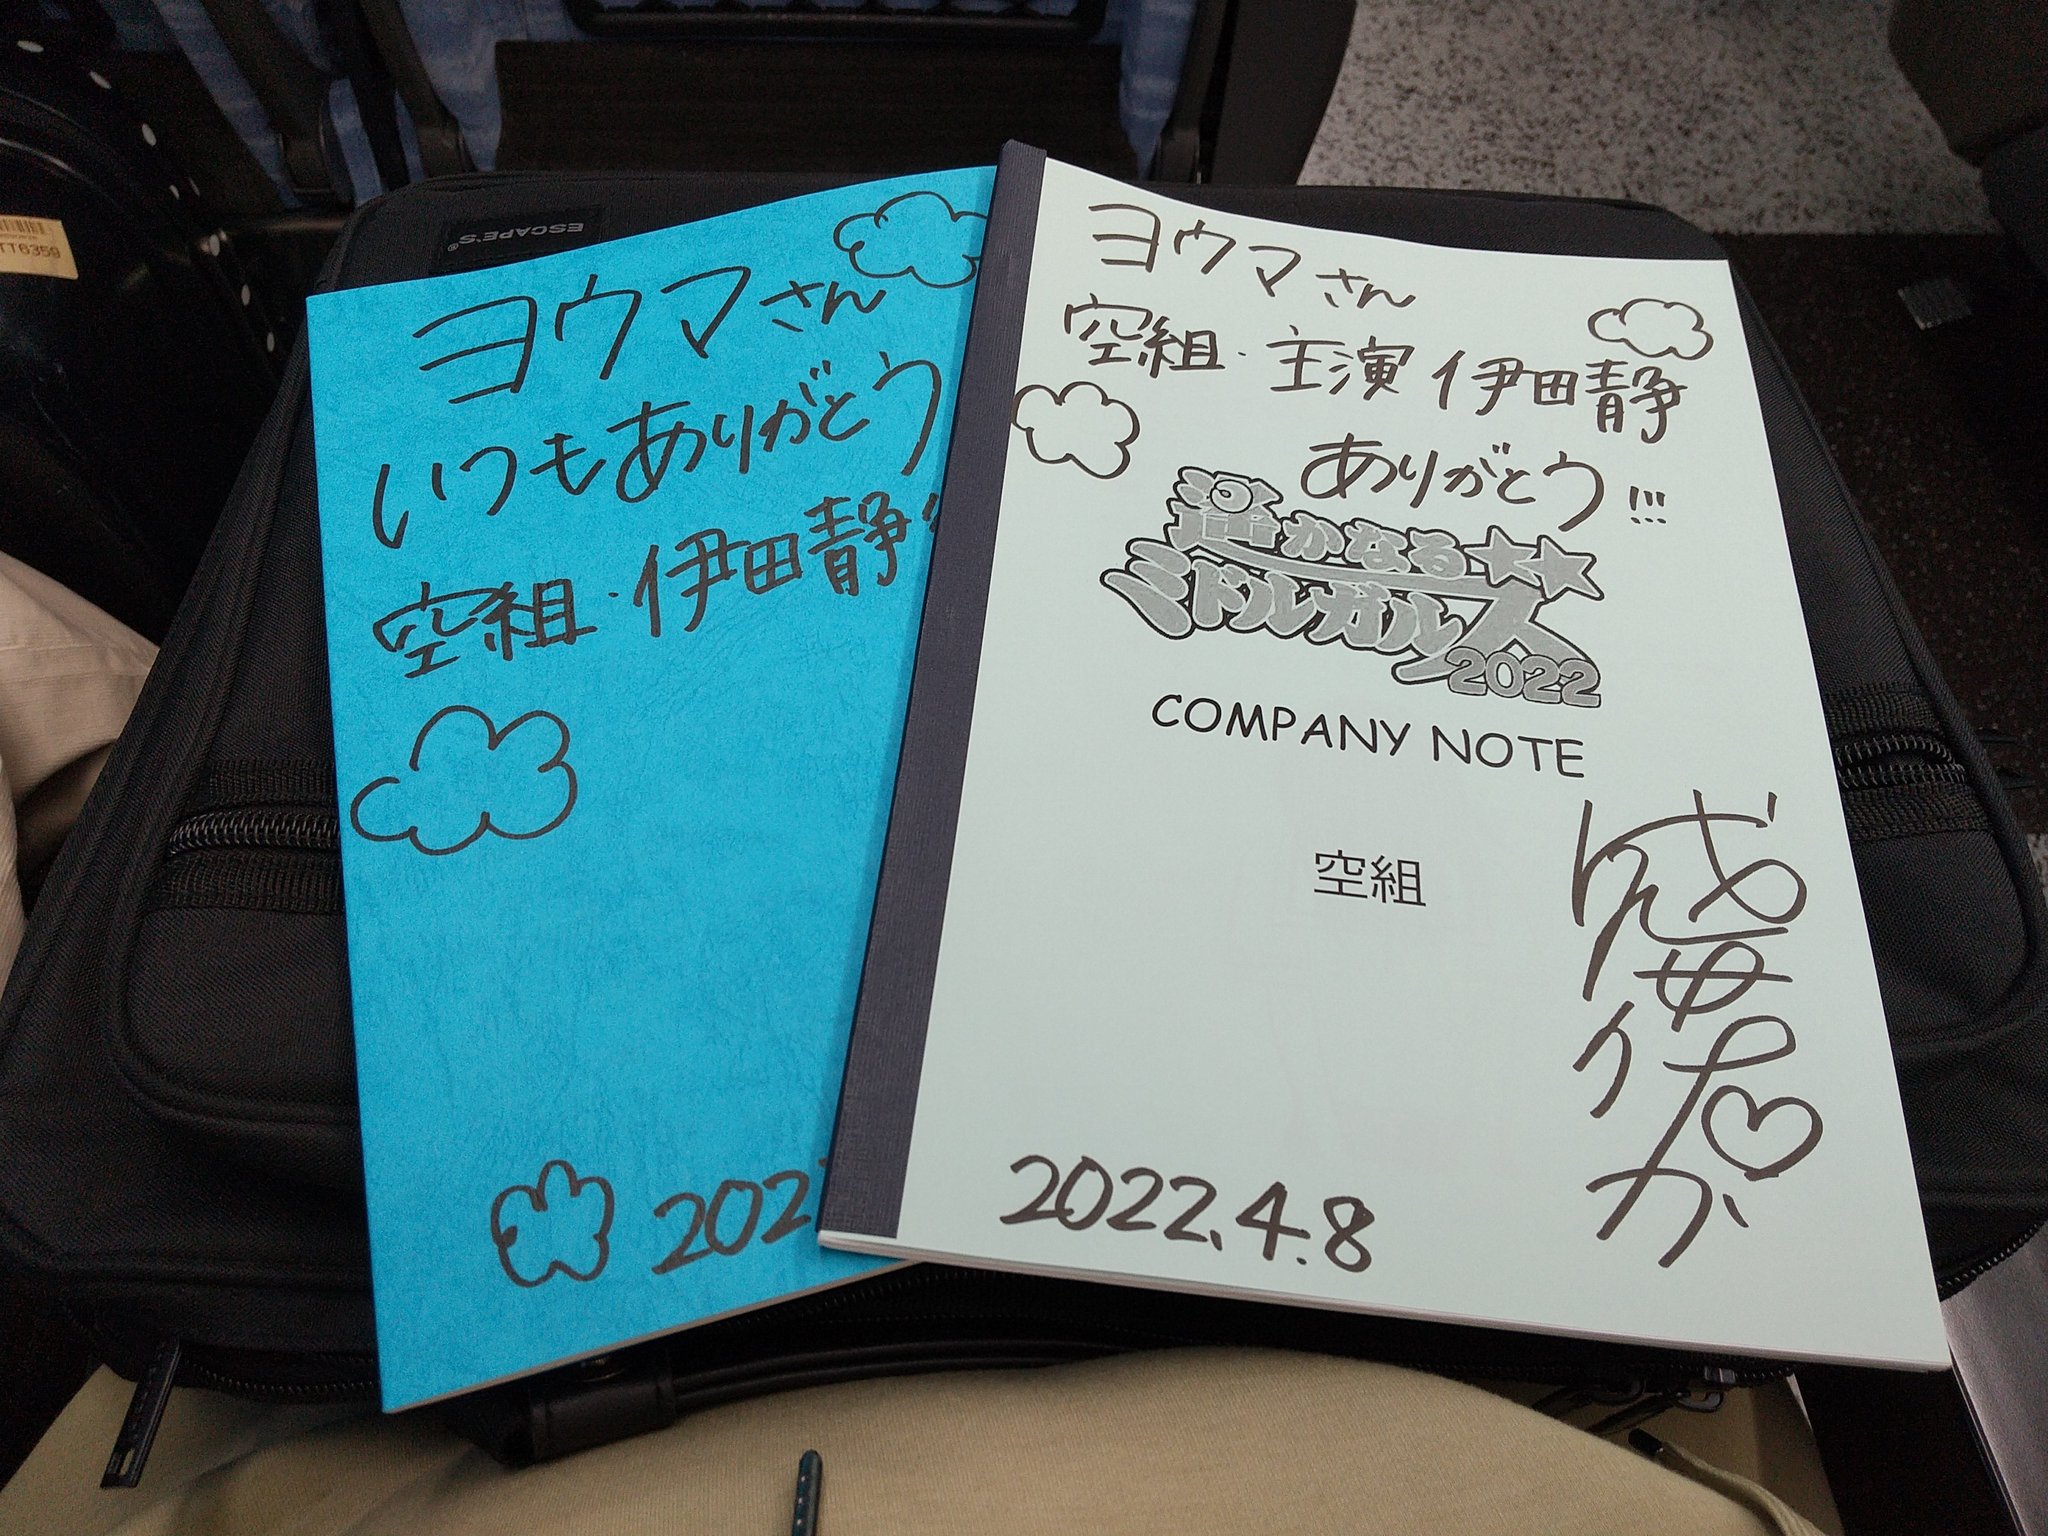 ヨウマさん
いつもありがとう
空組・伊田静
202
ヨウマさん
空組・主演 伊田静
ありがとう!!!
遥かなる☆☆
ミドルガルズ
2022
COMPANY NOTE
空組
2022.4.8
ESCAPE'S®
TT6359